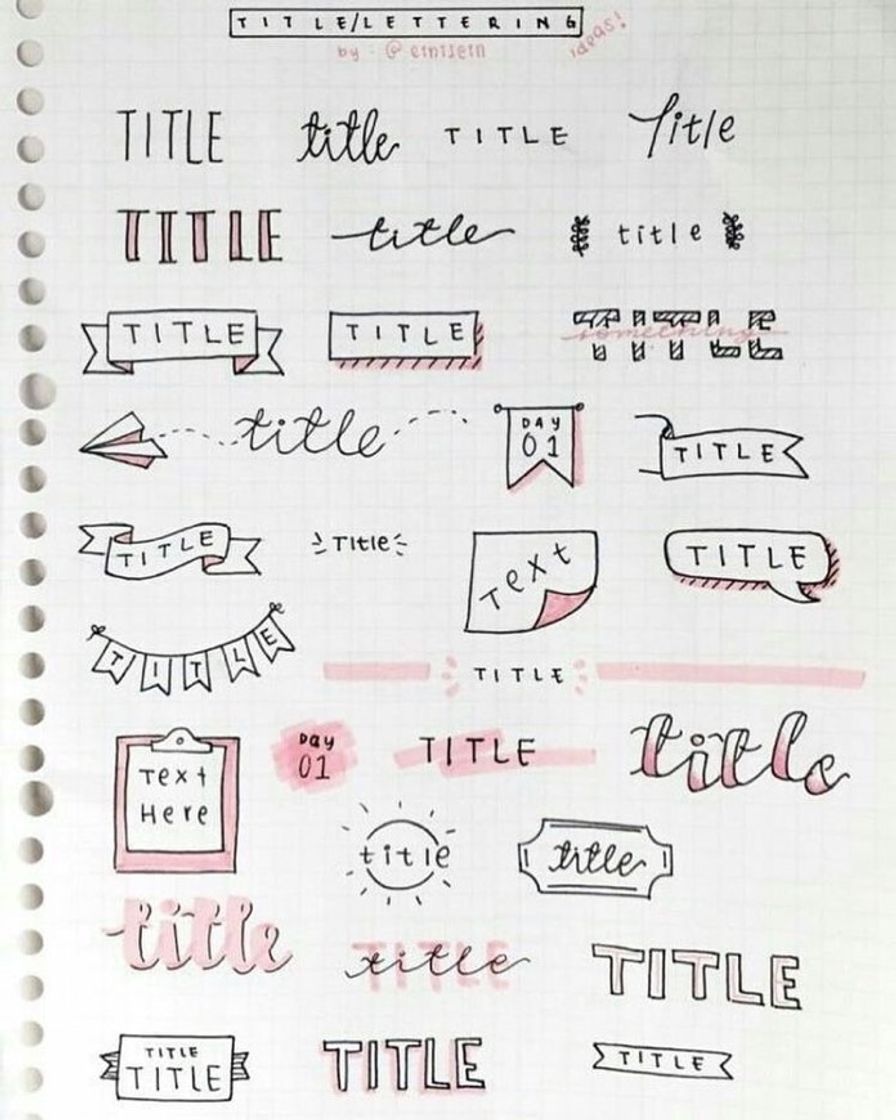 TITLE/LETTERING
ideas!
by @
TITLE title TITLE Title
TITLE title title
TITLE TITLE TITLE something
title DAY 01 TITLE
TITLE Title Text TITLE
TITLE
TITLE
Text Here
Day 01
TITLE title
title title
title title TITLE
TITLE TITLE
TITLE
TITLE
TITLE